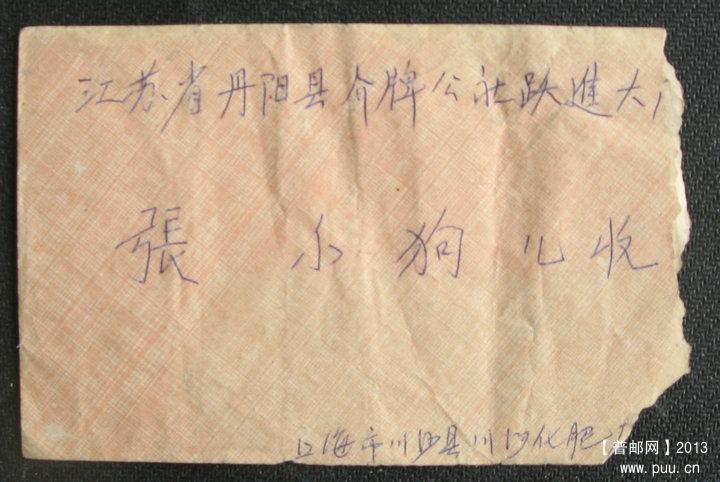 江苏省丹阳县介牌公社跃進大
張小狗儿收
上海市川沙县川沙化肥
【普邮网】2013
www.puu.cn